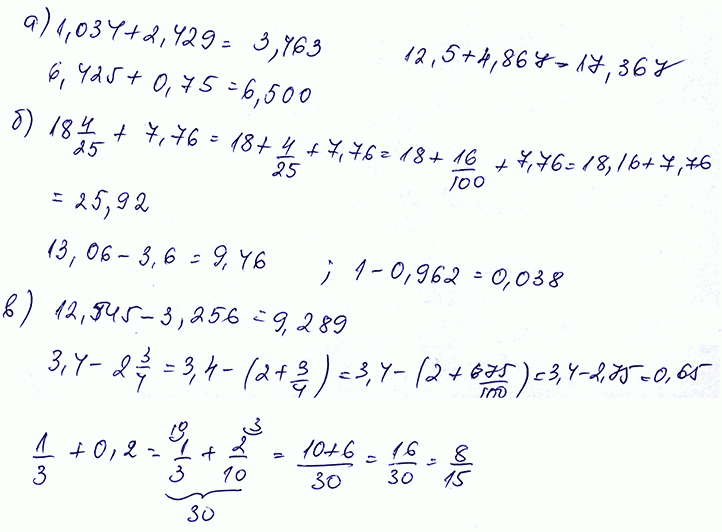 а) 1,034 + 2,429 = 3,763    12,5 + 4,867 = 17,367
6,425 + 0,75 = 6,500
б) 18 4/25 + 7,76 = 18 + 4/25 + 7,76 = 18 + 16/100 + 7,76 = 18,16 + 7,76
= 25,92
13,06 - 3,6 = 9,46 ; 1 - 0,962 = 0,038
в) 12,545 - 3,256 = 9,289
3,4 - 2 3/4 = 3,4 - (2 + 3/4) = 3,4 - (2 + 75/100) = 3,4 - 2,75 = 0,65
1/3 + 0,2 = 10) 1/3 + 2/10 (3 = 10+6/30 = 16/30 = 8/15
30